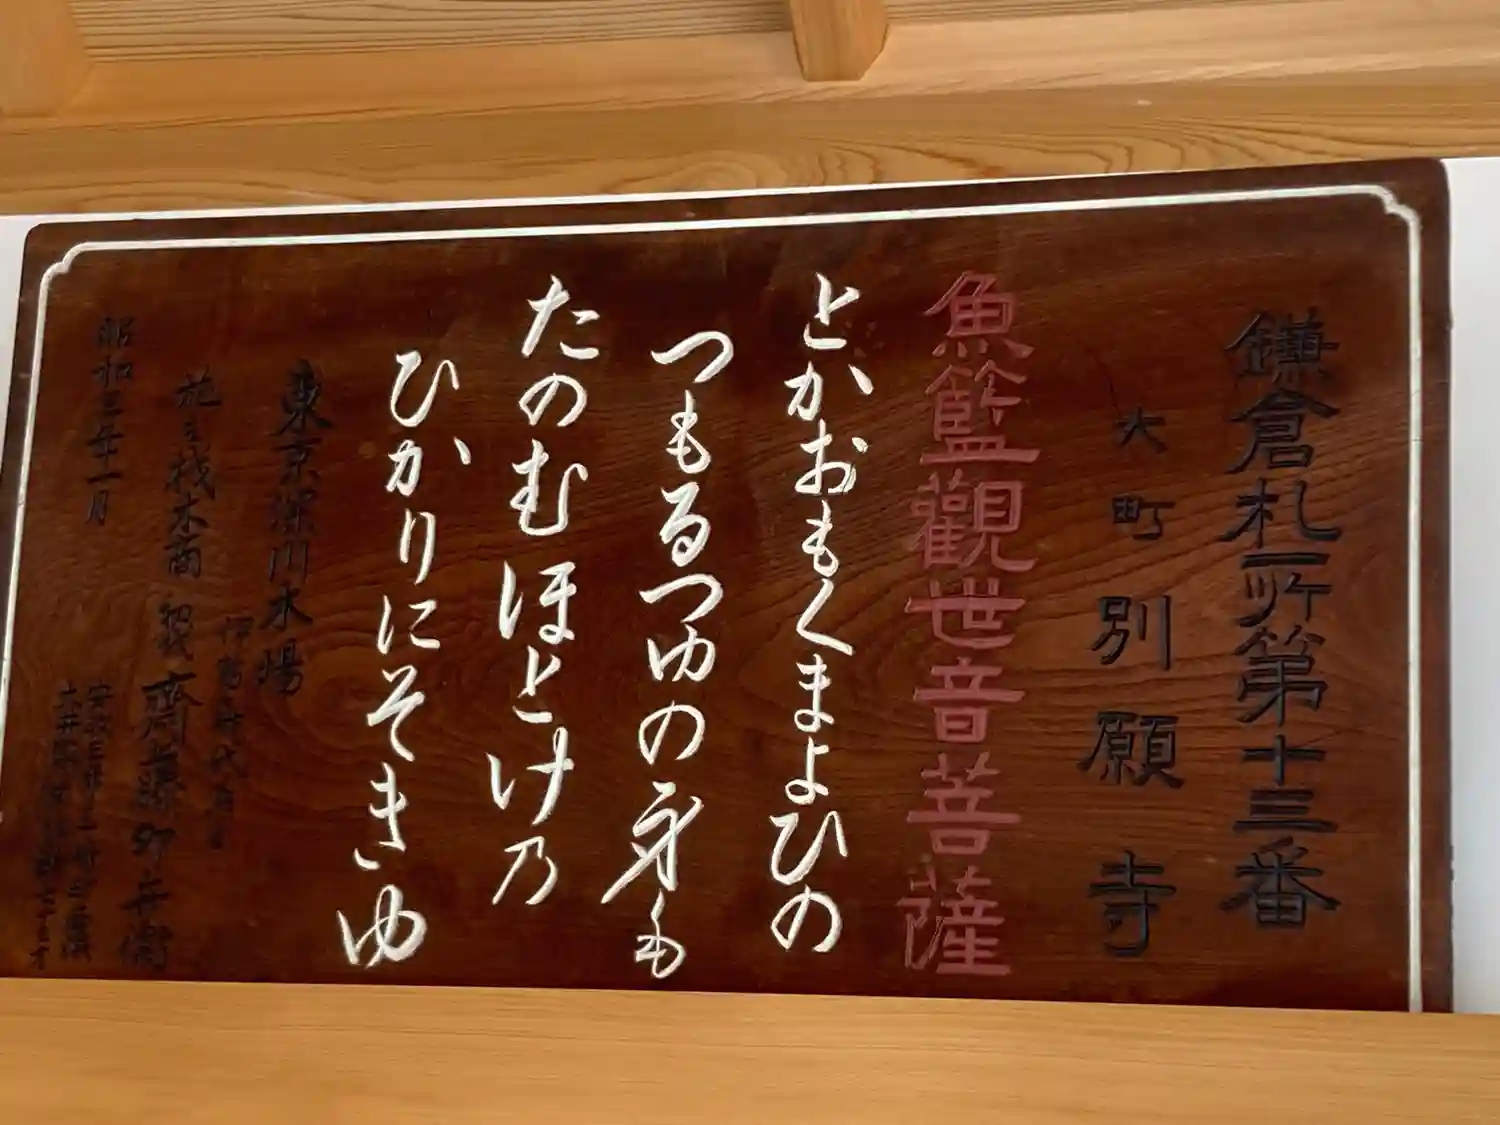 鎌倉札所第十三番
大町別願寺
魚籃觀世音菩薩
とかおもくまよひの
つもるつゆの身も
たのむほとけ乃
ひかりにそきゆ
東京深川木場
材木商
齋藤卯兵衞
昭和三年十一月